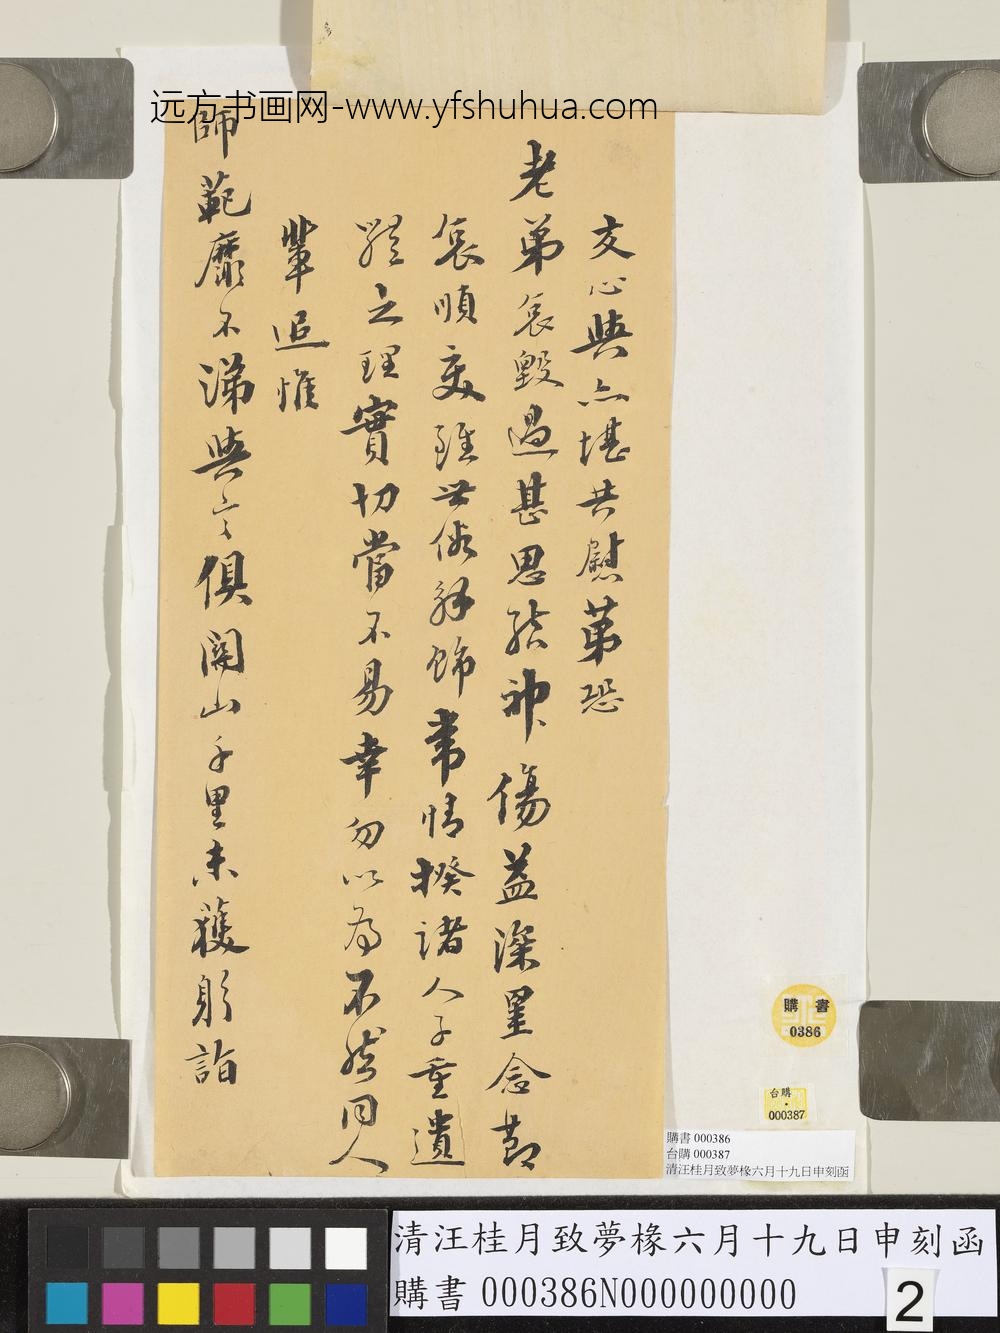 远方书画网-www.yfshuhua.com
友心與亦堪共慰苐恐
老弟哀毀過甚思結神傷益深罣念節
哀順變雖世俗解飾常情揆諸人子重遺
體之理實切當不易幸勿以為不然同人
輩追惟
師範靡不涕與言俱關山千里未獲躬詣
購書
0386
台購
000387
購書 000386
台購 000387
清汪桂月致夢椽六月十九日申刻函
清汪桂月致夢椽六月十九日申刻函
購書 000386N000000000
2